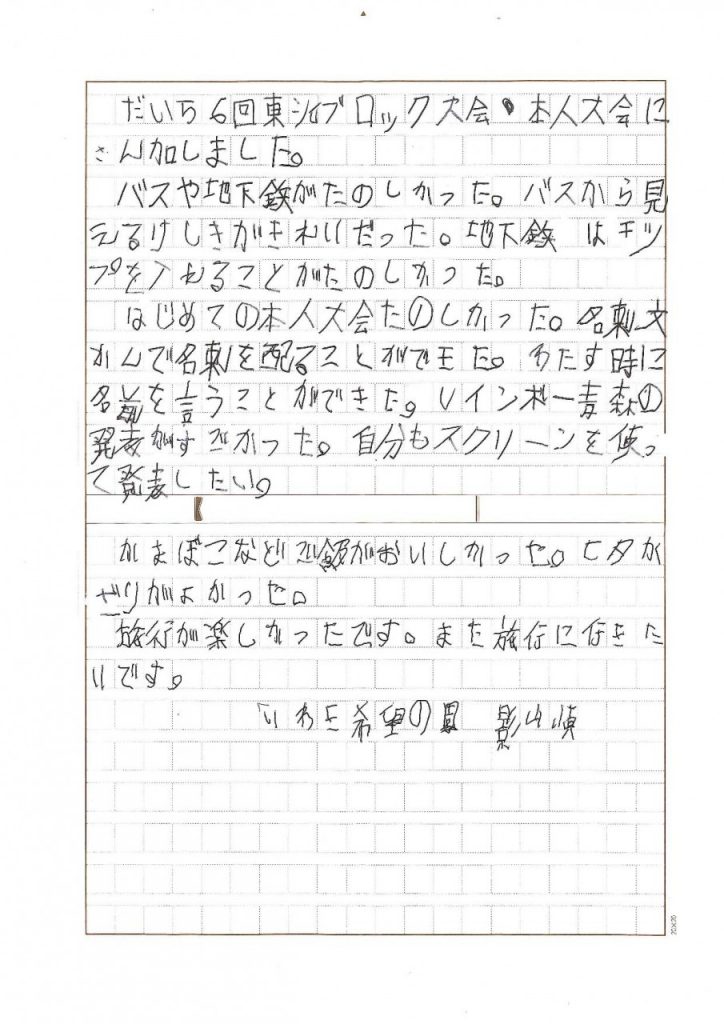 だいち6回東シイブロック大会・本人大会に
さん加しました。
バスや地下鉄がたのしかった。バスから見
えるけしきがきれいだった。地下鉄はチッ
プを入れることがたのしかった。
はじめての本人大会たのしかった。名刺交
かんで名刺を配ることができた。わたす時に
名前を言うことができた。レインボー青森の
発表がすごかった。自分もスクリーンを使っ
て発表したい。
かまぼこなどご飯がおいしかった。七夕か
ざりがよかった。
旅行が楽しかったです。また旅行に行きた
いです。
いわき希望の園 影山
20×20